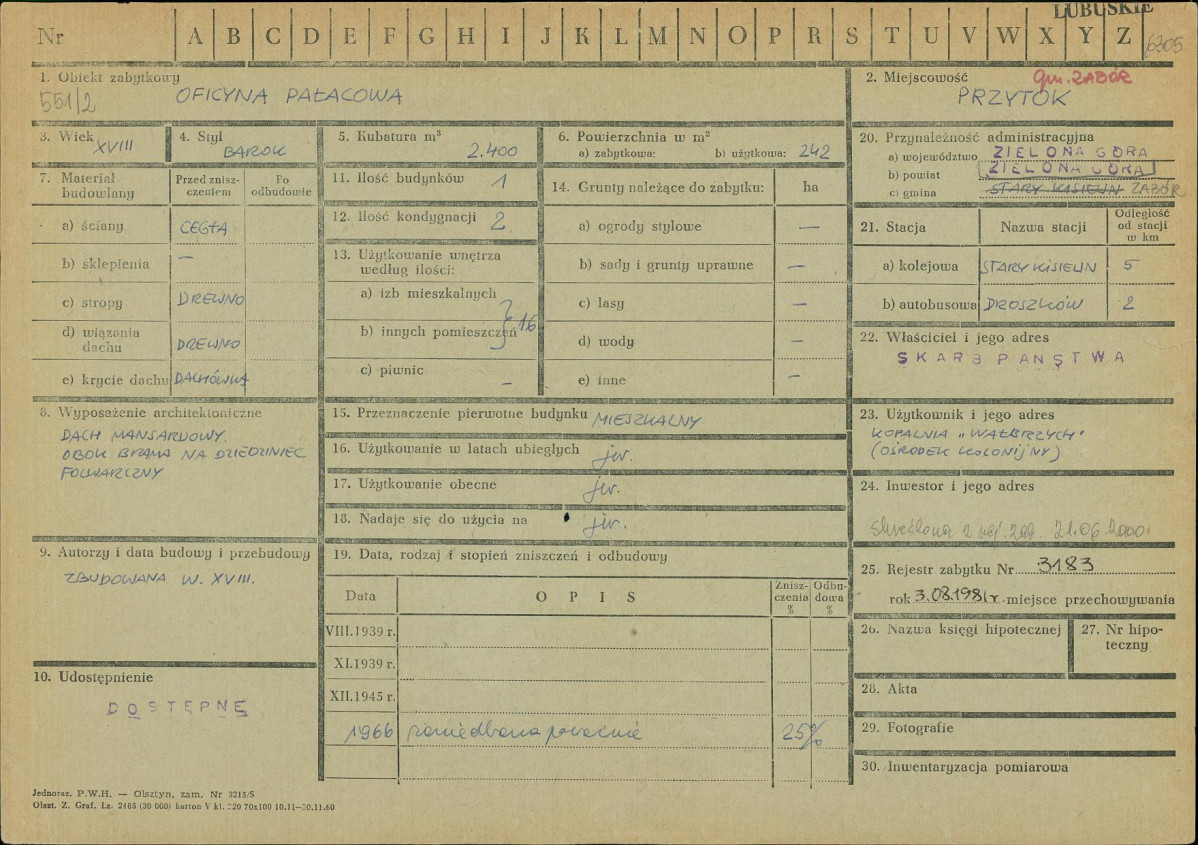 LUBUSKIE
Nr A B C D E F G H I J K L M N O P R S T U V W X Y Z 6205
1. Obiekt zabytkowy
551/2 OFICYNA PAŁACOWA
2. Miejscowość gm. ZABÓR
PRZYTOK
3. Wiek
XVIII
4. Styl
BAROK
5. Kubatura m³
2.400
6. Powierzchnia w m²
a) zabytkowa: b) użytkowa: 242
20. Przynależność administracyjna
a) województwo ZIELONA GÓRA
b) powiat ZIELONA GÓRA
c) gmina STARY KISIELIN ZABÓR
7. Materiał budowlany
Przed znisz-
czeniem
Po
odbudowie
a) ściany CEGŁA
b) sklepienia —
c) stropy DREWNO
d) wiązania
dachu DREWNO
e) krycie dachu DACHÓWKA
11. Ilość budynków 1
12. Ilość kondygnacji 2.
13. Użytkowanie wnętrza
według ilości:
a) izb mieszkalnych
b) innych pomieszczeń } 16
c) piwnic —
14. Grunty należące do zabytku: ha
a) ogrody stylowe —
b) sady i grunty uprawne —
c) lasy —
d) wody —
e) inne —
21. Stacja Nazwa stacji Odległość
od stacji
w km
a) kolejowa STARY KISIELIN 5
b) autobusowa DROSZKÓW 2
22. Właściciel i jego adres
SKARB PAŃSTWA
8. Wyposażenie architektoniczne
DACH MANSARDOWY.
OBOK BRAMA NA DZIEDZINIEC
FOLWARCZNY
15. Przeznaczenie pierwotne budynku MIESZKALNY
16. Użytkowanie w latach ubiegłych jw.
17. Użytkowanie obecne jw.
18. Nadaje się do użycia na jw.
23. Użytkownik i jego adres
KOPALNIA „WAŁBRZYCH"
(OŚRODEK KOLONIJNY)
24. Inwestor i jego adres
skreślona z rej. zab. 21.06.2000
9. Autorzy i data budowy i przebudowy
ZBUDOWANA W. XVIII.
19. Data, rodzaj i stopień zniszczeń i odbudowy
Data OPIS Znisz-
czenia
% Odbu-
dowa
%
VIII.1939 r.
XI.1939 r.
XII.1945 r.
1966 zaniedbana poważnie 25%
25. Rejestr zabytku Nr 3183
rok 3.08.1981r. miejsce przechowywania
26. Nazwa księgi hipotecznej
27. Nr hipo-
teczny
10. Udostępnienie
DOSTĘPNE
28. Akta
29. Fotografie
30. Inwentaryzacja pomiarowa
Jednoraz. P.W.H. — Olsztyn, zam. Nr 3215/S
Olszt. Z. Graf. Lz. 2485 (30 000) karton V kl. 220 70x100 10.11—30.11.60